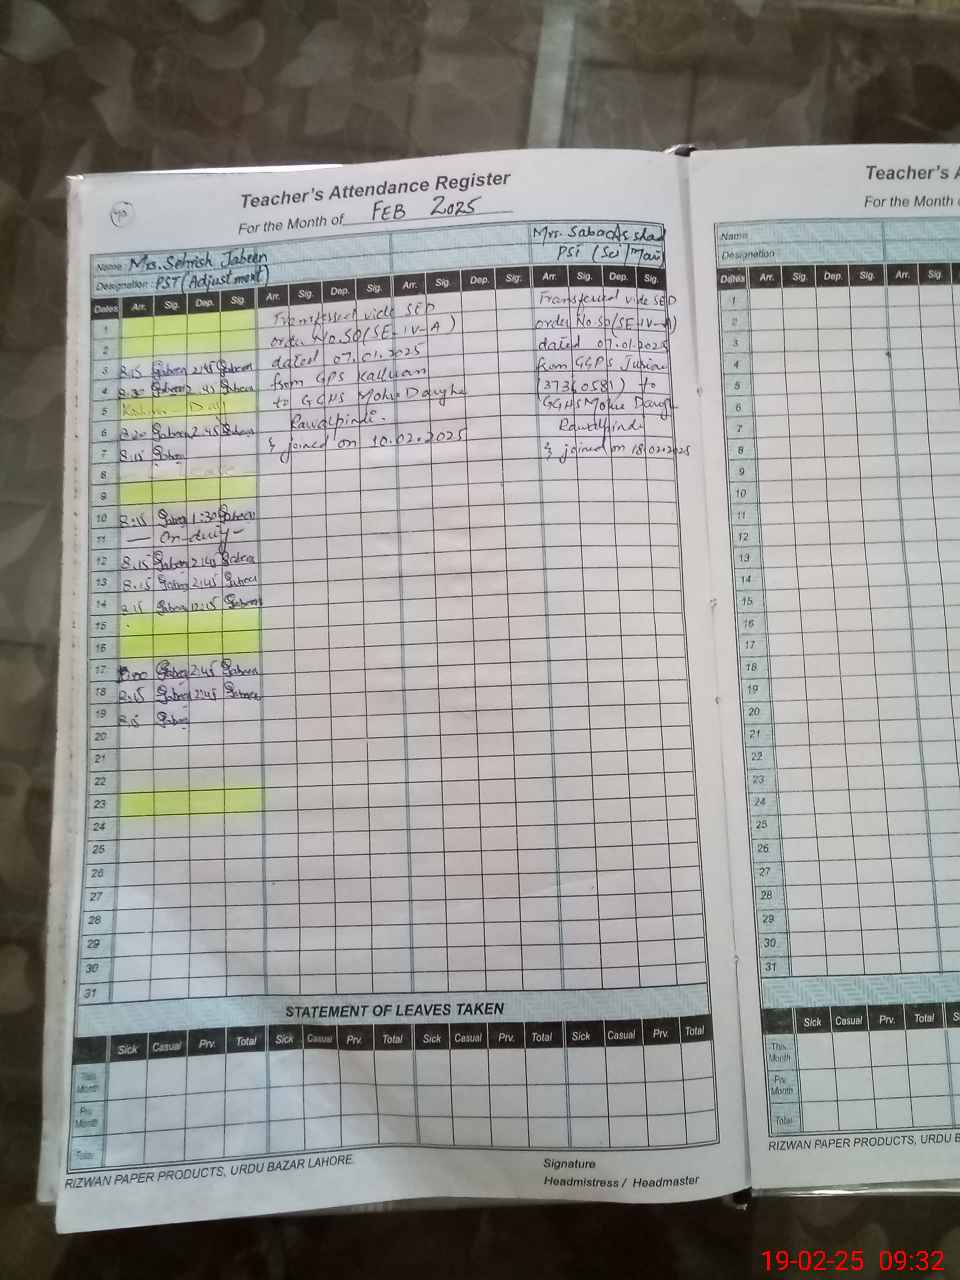 Teacher's Attendance Register
For the Month of FEB 2025
Name Mrs. Sehrish Jabeen
Designation : PST (Adjustment)
Mrs. Saba Arshad
PST (Sci/Math)
Dates Arr. Sig. Dep. Sig. Arr. Sig. Dep. Sig. Arr. Sig. Dep. Sig. Arr. Sig. Dep. Sig.
Transferred vide SED
order No. SO(SE-IV-A)
dated 07.01.2025
from GPS Kalluan
to GGHS Mohra Darogha
Rawalpindi.
& joined on 10.02.2025
Transferred vide SED
order No SO(SE-IV-A)
dated 07.01.2025
from GGPS
(37360581) to
GGHS
Rawalpindi
& joined on 18.02.2025
1
2
3 8.15 Jabeen 2:45 Jabeen
4 8:20 Jabeen 2:45 Jabeen
5 Kashmir Day
6 8:20 Jabeen 2:45 Jabeen
7 8.15 Jabeen
8
9
10 8:15 Jabeen 1:30 Jabeen
11 — On duty —
12 8.15 Jabeen 2:45 Jabeen
13 8.15 Jabeen 2:45 Jabeen
14 8.15 Jabeen 12:15 Jabeen
15
16
17 8:00 Jabeen 2:45 Jabeen
18 8.15 Jabeen 2:45 Jabeen
19 8.15 Jabeen
20
21
22
23
24
25
26
27
28
29
30
31
STATEMENT OF LEAVES TAKEN
Sick Casual Prv. Total Sick Casual Prv. Total Sick Casual Prv. Total Sick Casual Prv. Total
This Month
Prv. Month
Total
RIZWAN PAPER PRODUCTS, URDU BAZAR LAHORE.
Signature
Headmistress / Headmaster
Teacher's A
For the Month
Name
Designation
Dates Arr. Sig. Dep. Sig. Arr. Sig.
1
2
3
4
5
6
7
8
9
10
11
12
13
14
15
16
17
18
19
20
21
22
23
24
25
26
27
28
29
30
31
Sick Casual Prv. Total
This Month
Prv. Month
Total
RIZWAN PAPER PRODUCTS, URDU B
19-02-25 09:32